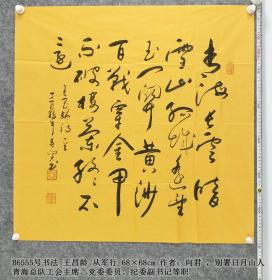 青海長雲暗
雪山孤城遥望
玉門關黄沙
百戰穿金甲
不破樓蘭終不
還
王昌龄诗一首
B6555号书法 王昌龄 从军行 68×68cm 作者:向君;别署日月山人
青海总队工会主席、党委委员、纪委副书记等职